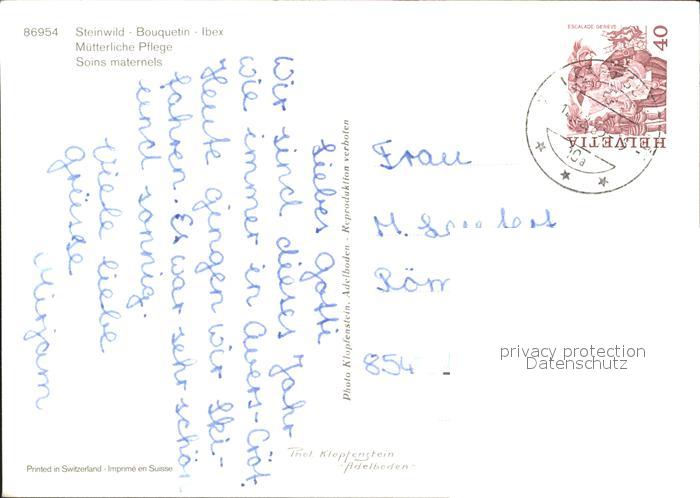 86954 Steinwild - Bouquetin - Ibex
Mütterliche Pflege
Soins maternels
Liebes Gotti
Wir sind dieses Jahr
wie immer in Avers-Cröt.
Heute gingen wir Ski-
fahren. Es war sehr schön
und sonnig.
Viele liebe
Grüsse
Mirjam
Printed in Switzerland - Imprimé en Suisse
Photo Klopfenstein, Adelboden - Reproduktion verboten
Phot. Klopfenstein
-Adelboden-
ESCALADE GENÈVE
40
HELVETIA
Frau
M.
854
privacy protection
Datenschutz